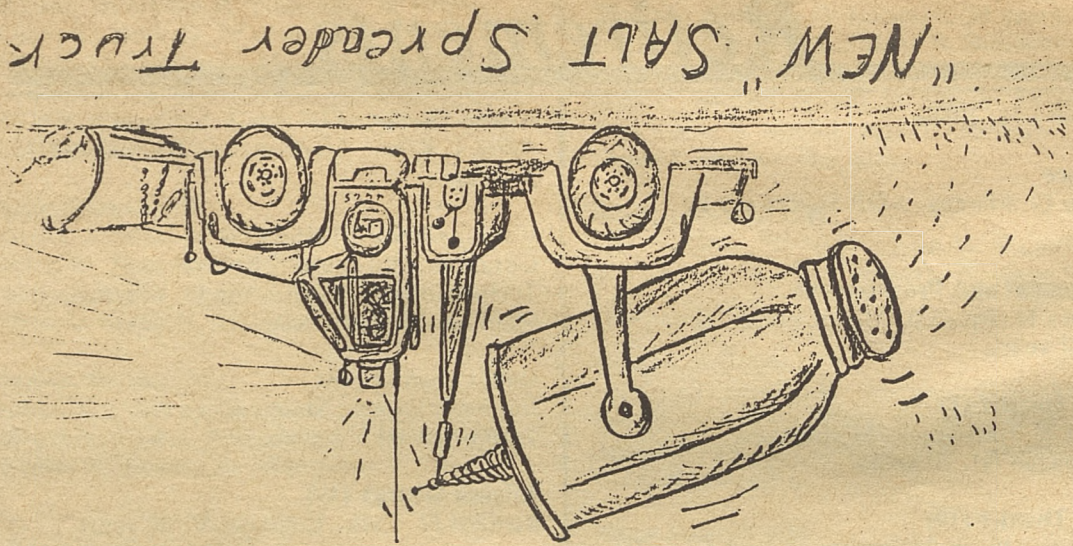 "NEW" SALT Spreader Truck